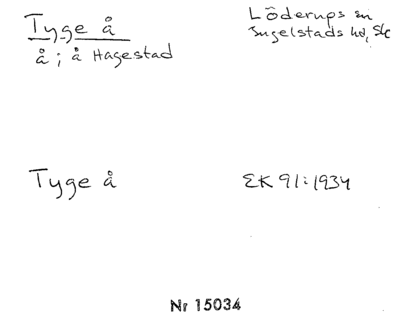 Tyge å
Löderups sn
å ; å Hagestad
Ingelstads hd, Sk
Tyge å
EK 91:1934
Nr 15034